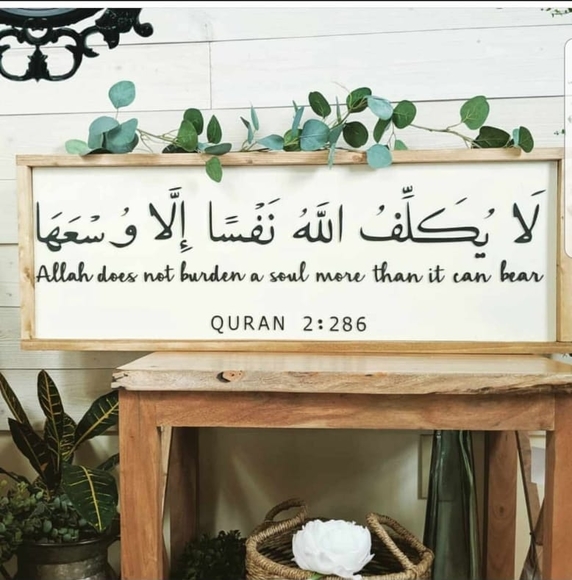 لَا يُكَلِّفُ اللَّهُ نَفْسًا إِلَّا وُسْعَهَا
Allah does not burden a soul more than it can bear
QURAN 2:286